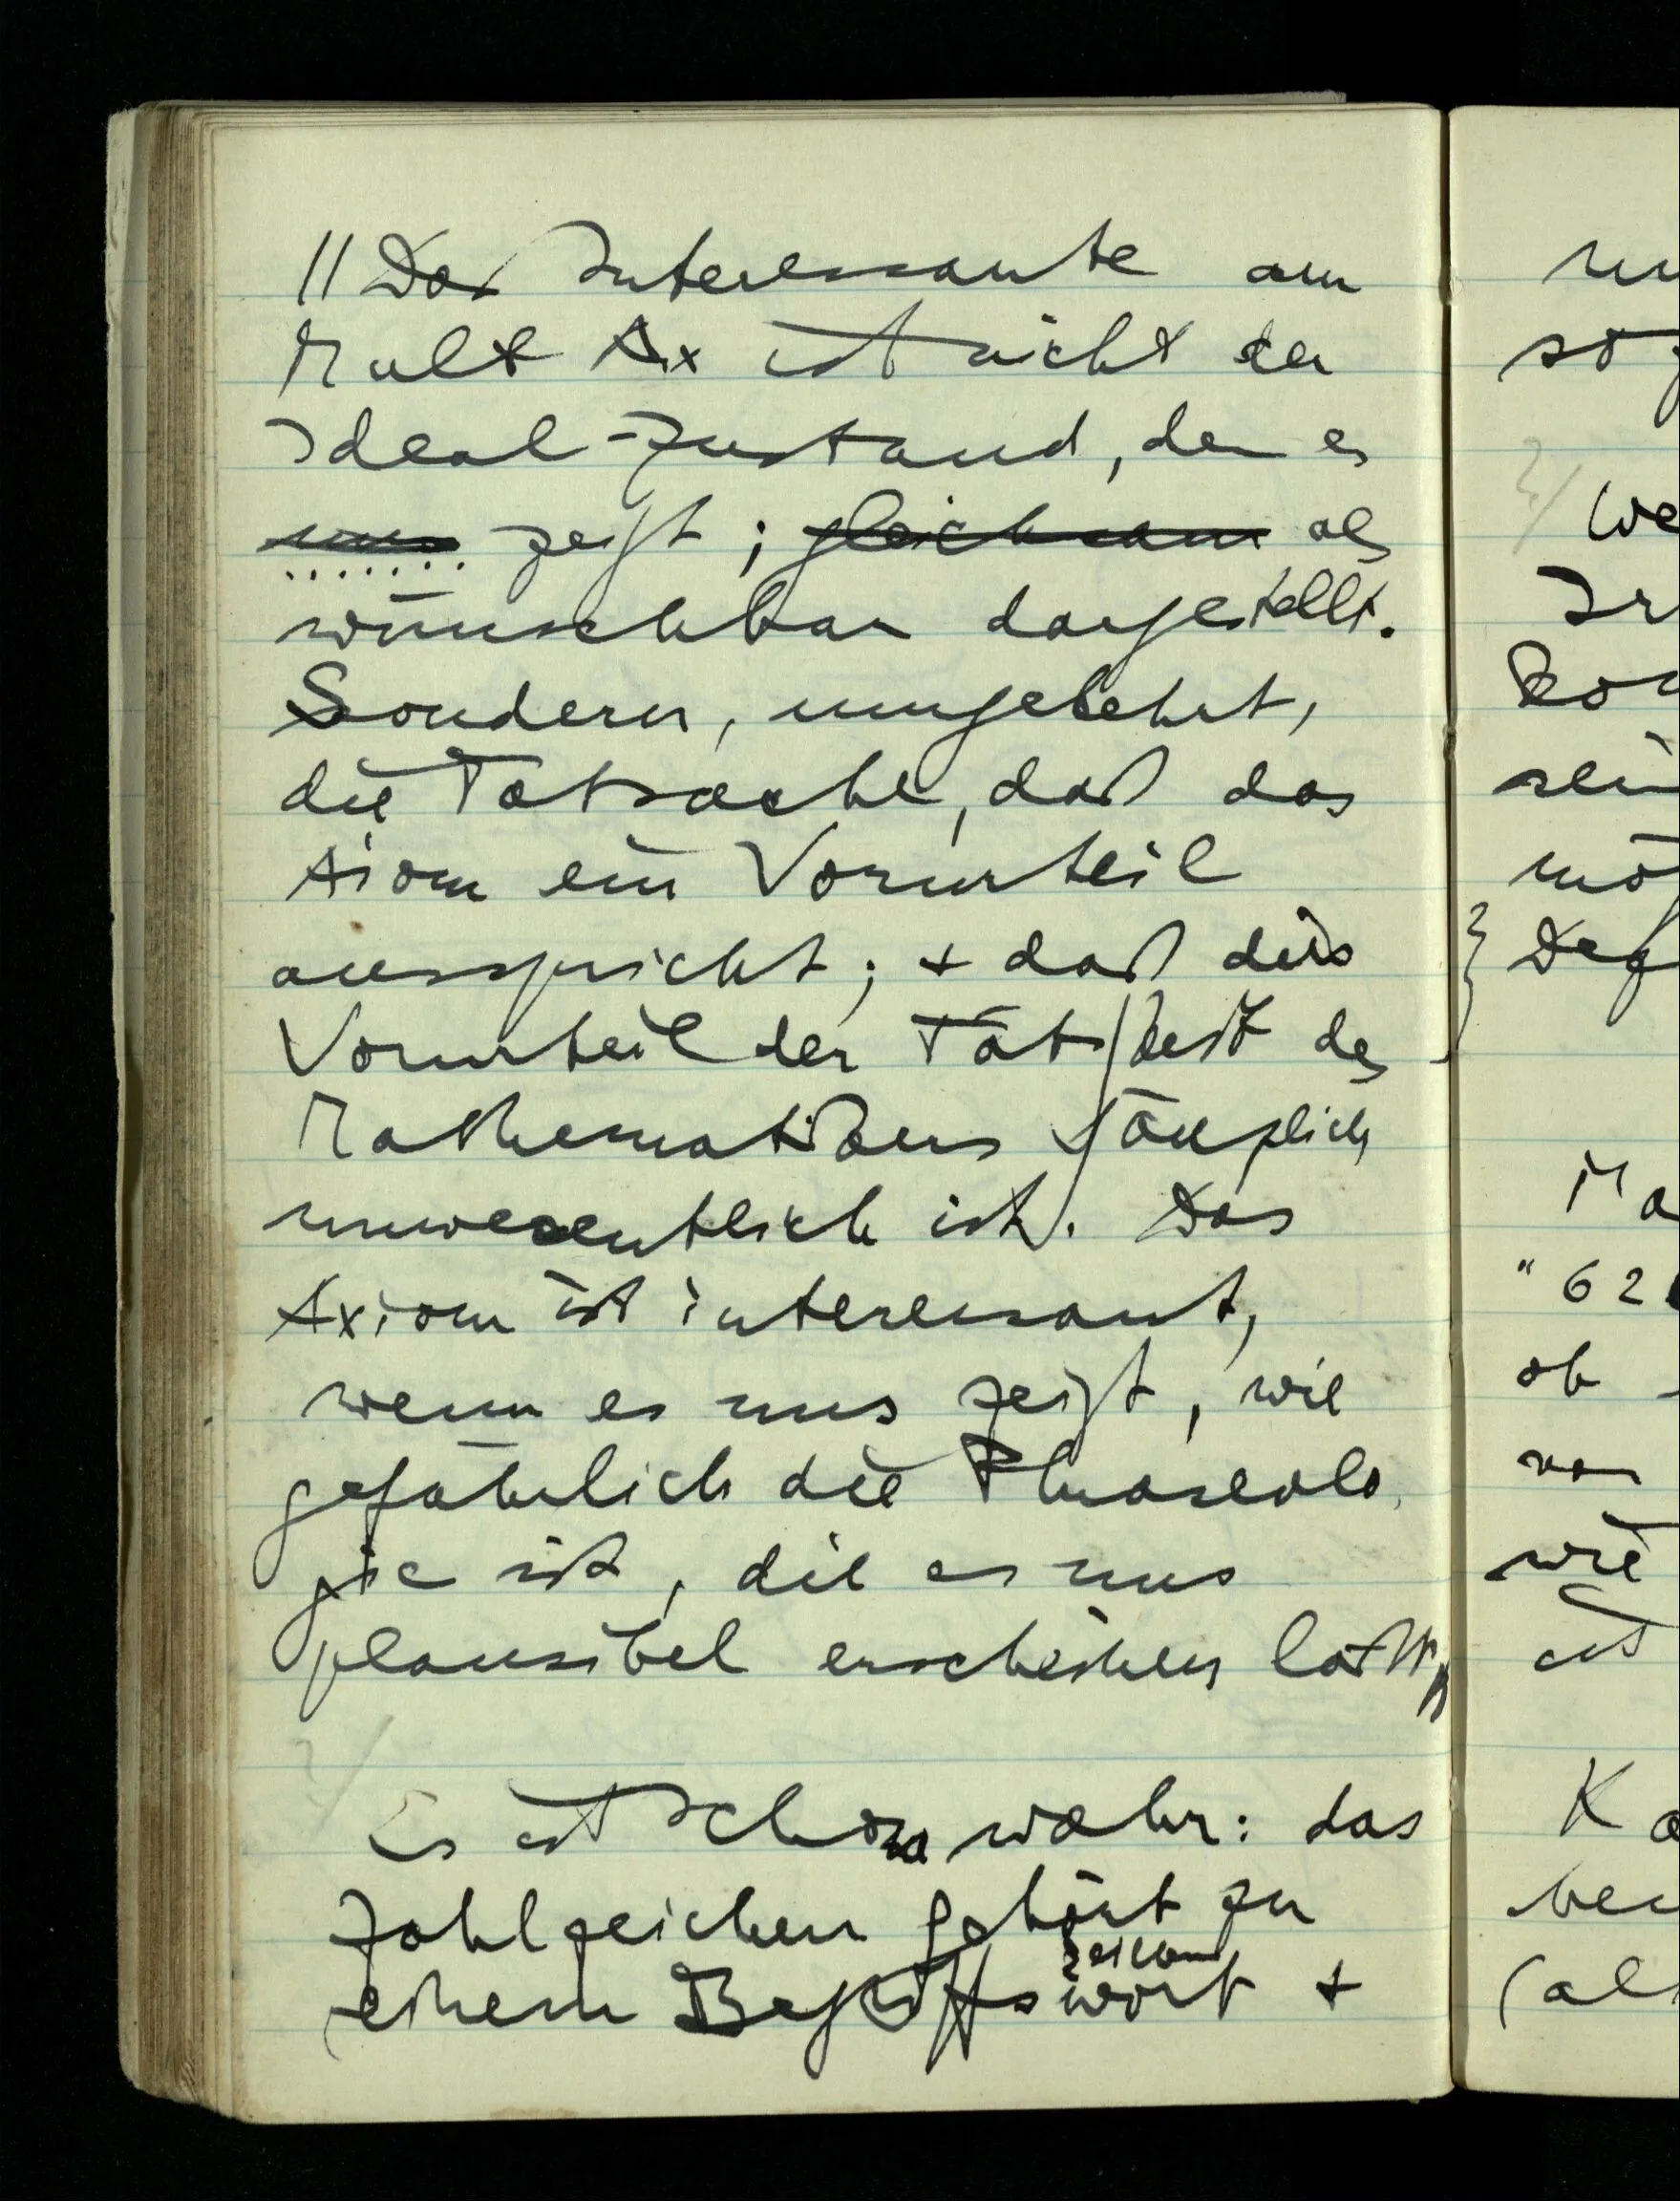 // Das Interessante am
Mult Ax ist nicht der
Ideal-Zustand, den es
uns zeigt; gleichsam als
wünschbar dargestellt.
Sondern, umgekehrt,
die Tatsache, daß das
Axiom ein Vorurteil
ausspricht; + daß dies
Vorurteil der Tätigkeit des
Mathematikers gänzlich
unwesentlich ist. Das
Axiom ist interessant,
wenn es uns zeigt, wie
gefährlich die Phraseolo
gie ist, die es uns
plausibel erscheinen läßt //
Es ist schon wahr: das
Zahlzeichen gehört zu
zeichen
einem Begriffswort +
so
We
Ir
Kon
sein
mö
Def
Ma
"62
ob
von
wie
ist
Ka
(al